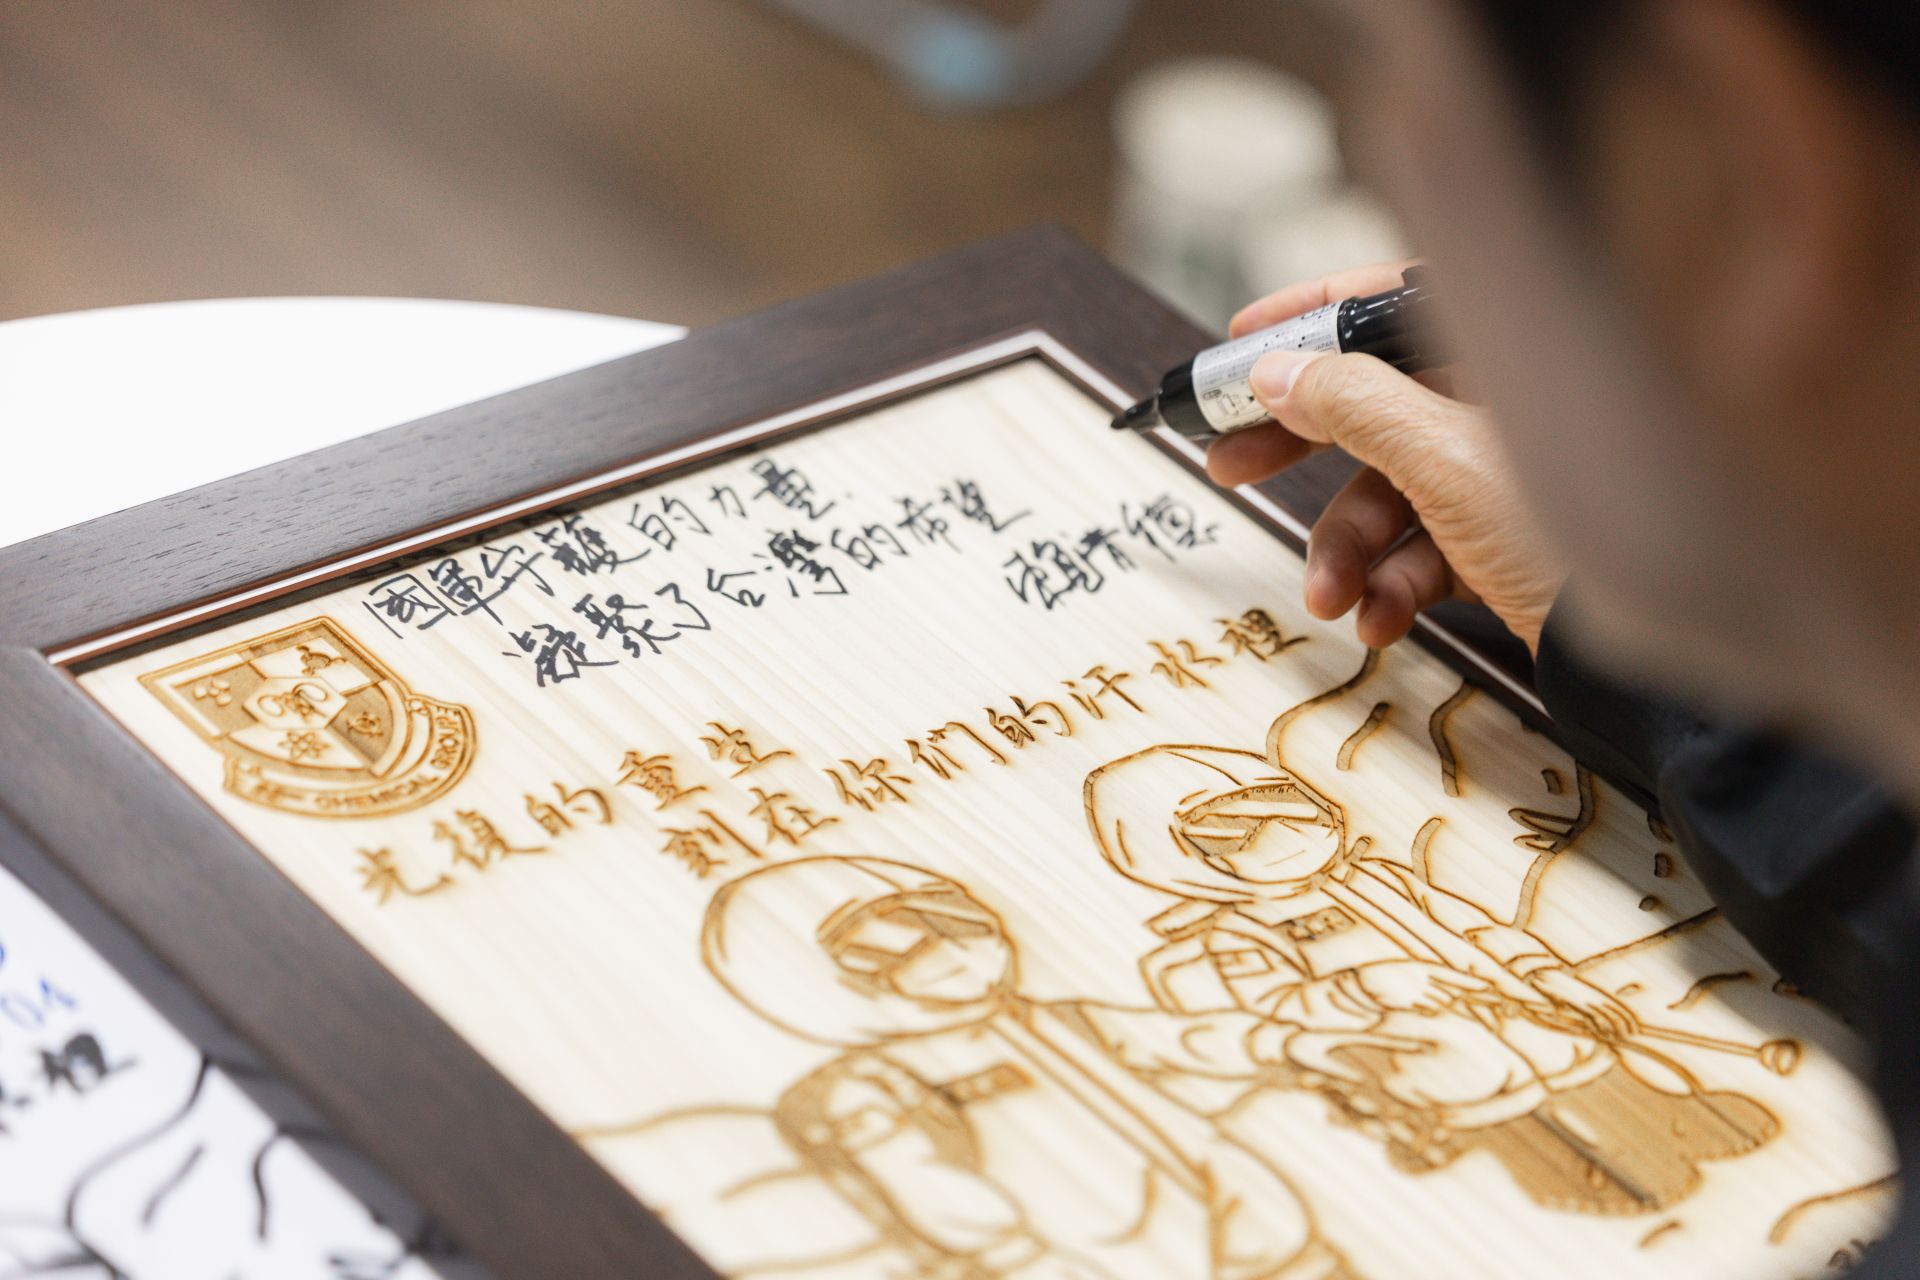 國軍守護的力量
凝聚了台灣的希望
賴清德
CHEMICAL GROUP
光復的重生
刻在你們的汗水裡
JAPAN
04
水裡